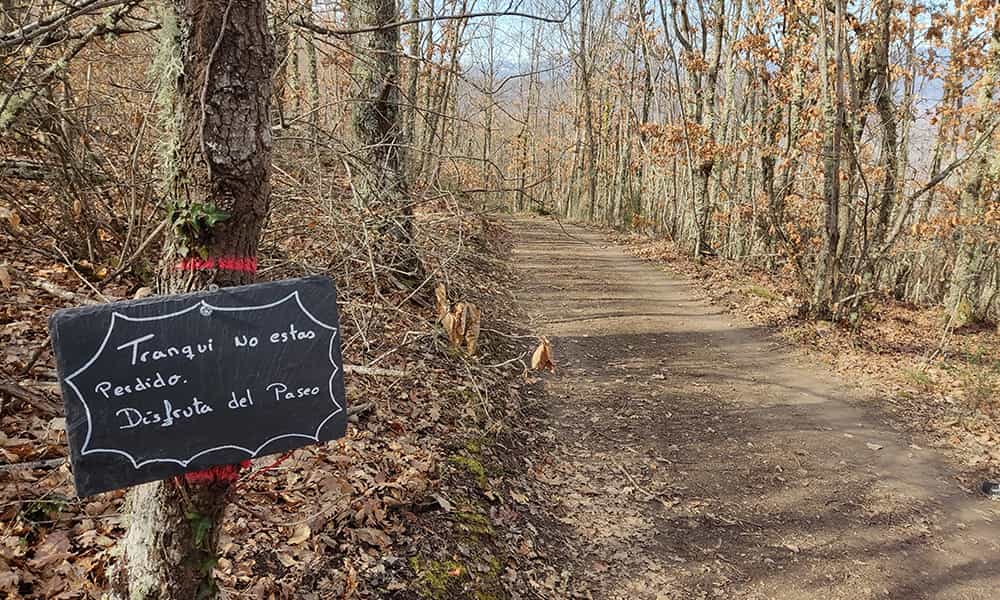 Tranqui No estas
Perdido.
Disfruta del Paseo